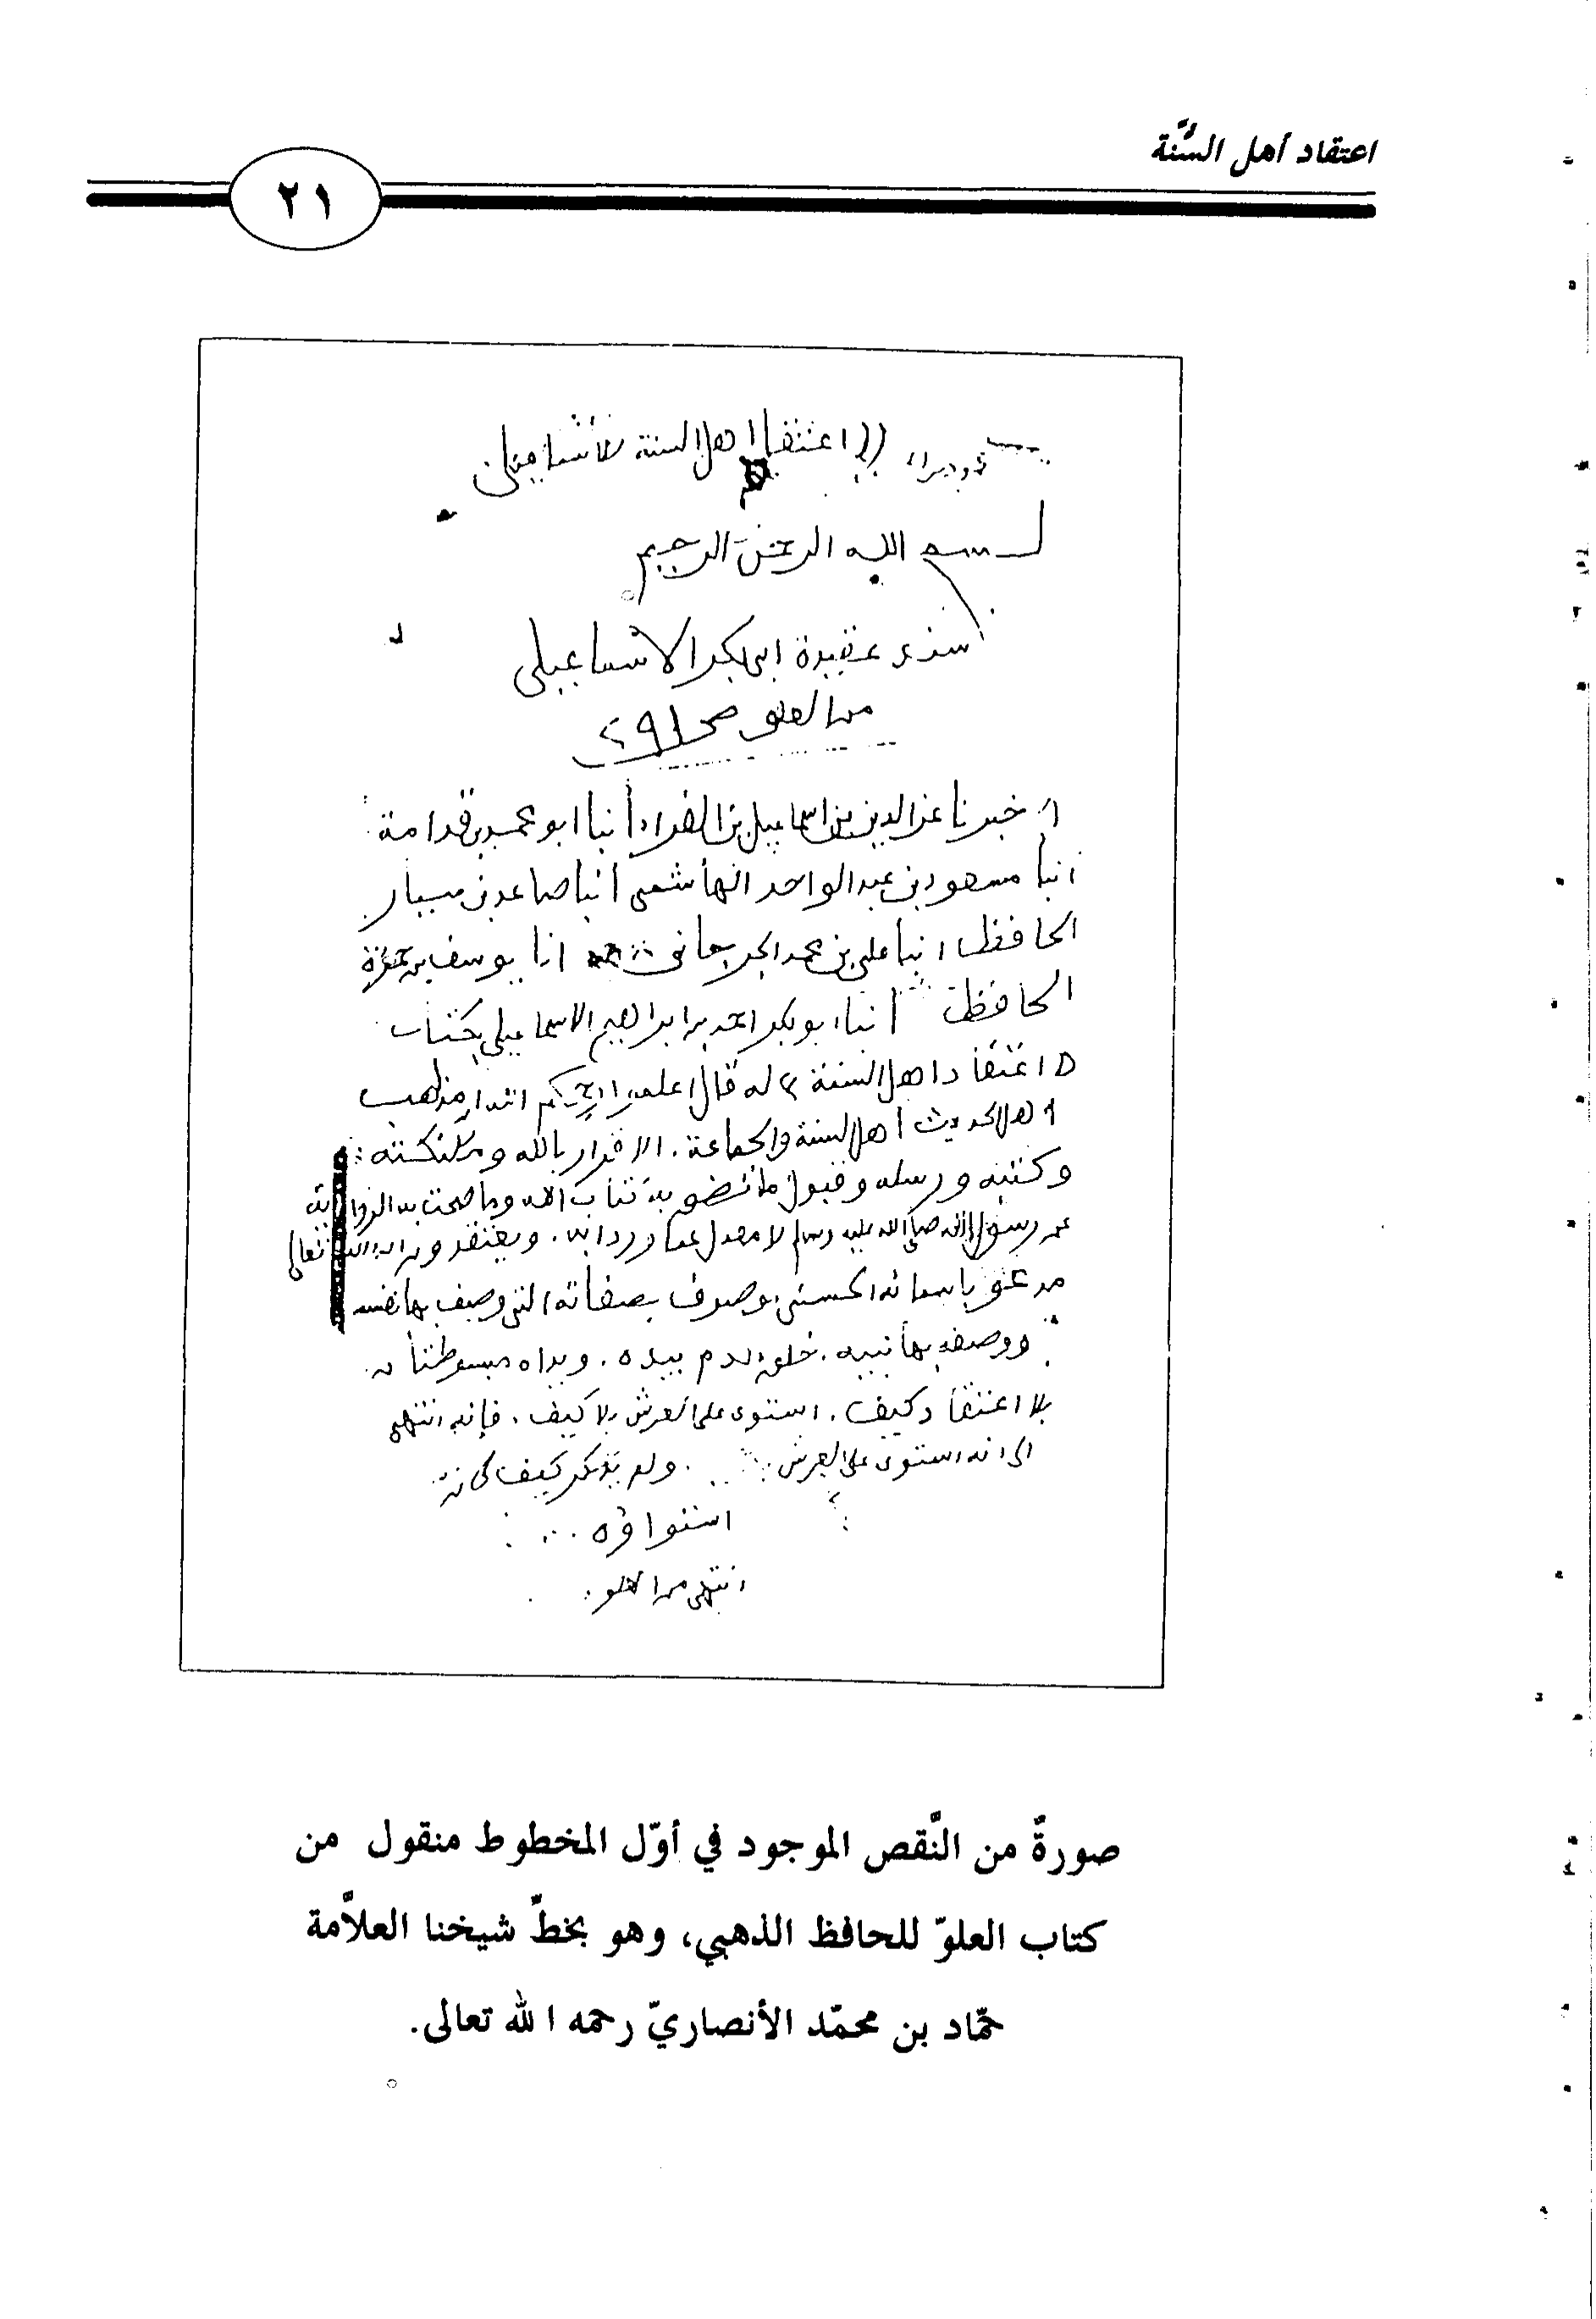 اعتقاد أهل السُّنة
٢١
(( اعتقا اهل السنة للأسماعيلى
بسم الله الرحمن الرحيم
سند عقيدة ابى بكر الاسماعيلى
من العلو ص
اخبرنا عز الدين بن اسماعيل بن الفراء أنبا ابو محمد بن قدامة
انبا مسعود بن عبد الواحد الهاشمى انبا صاعد بن سيار
الحافظ انبا على بن محمد الجرجانى انا يوسف بن حمزة
الحافظ انبا ابو بكر احمد بن ابراهيم الاسماعيلى بكتاب
اعتقاد اهل السنة له قال اعلموا رحمكم الله ان مذهب
اهل الحديث اهل السنة والجماعة. الاقرار بالله وملائكته
وكتبه ورسله وقبول ما نطق به كتاب الله وما صحت به الرواية
عن رسول الله صلى الله عليه وسلم لا معدل عما ورد به. ويعتقدون ان الله تعالى
مدعو باسمائه الحسنى موصوف بصفاته التى وصف بها نفسه
ووصفه بها نبيه. خلق ادم بيده. ويداه مبسوطتان
بلا اعتقاد كيف. استوى على العرش بلا كيف. فإنه انتهى
الى انه استوى على العرش . ولم يذكر كيف كان
استواؤه ...
انتهى من العلو
صورةٌ من النَّقص الموجود في أوّل المخطوط منقول من
كتاب العلوّ للحافظ الذهبي، وهو بخطّ شيخنا العلاَّمة
حمّاد بن محمّد الأنصاريّ رحمه الله تعالى.